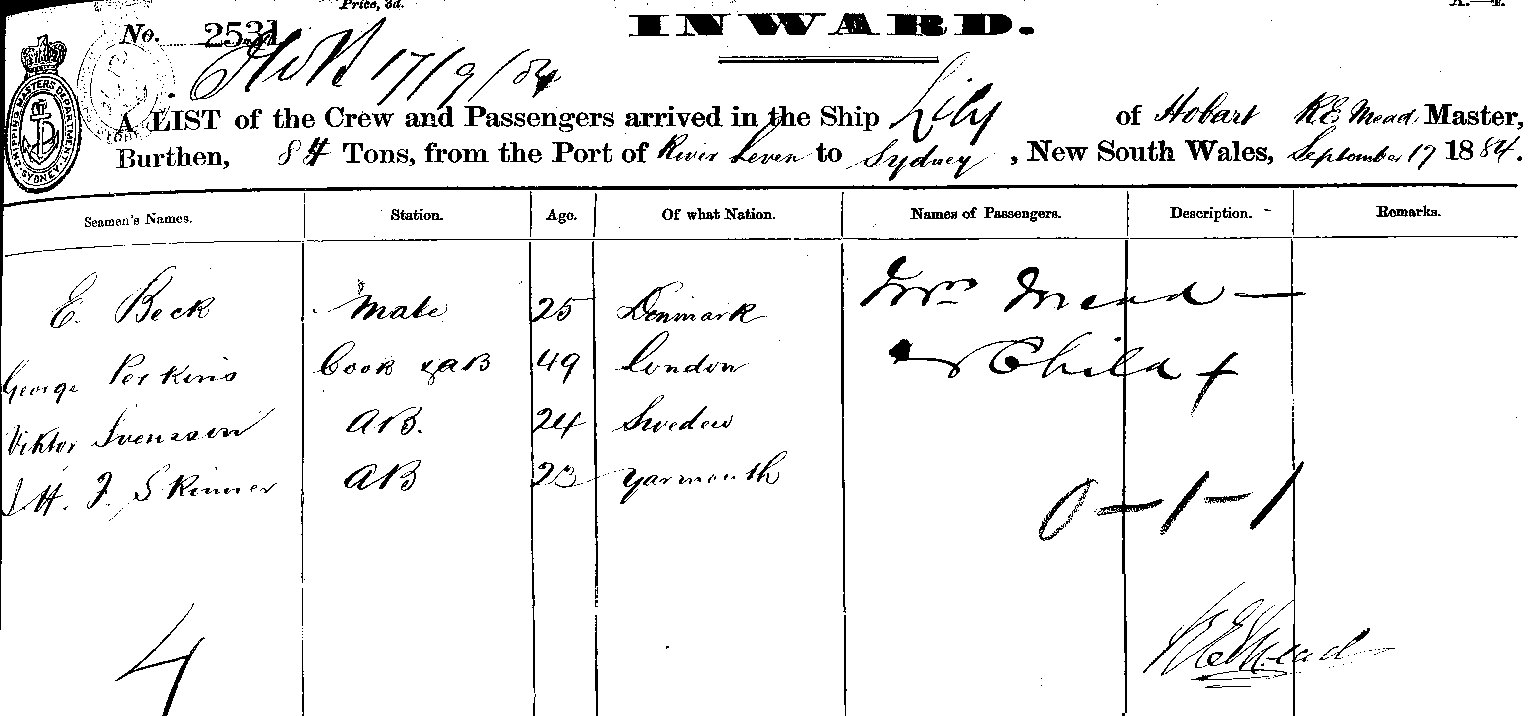 Price, 3d.
No. 2531
INWARD.
17/9/84
SHIPPING MASTERS DEPARTMENT SYDNEY
A LIST of the Crew and Passengers arrived in the Ship Lily of Hobart R.E. Mead Master,
Burthen, 84 Tons, from the Port of River Leven to Sydney, New South Wales, September 17 1884.
Seamen's Names. Station. Age. Of what Nation. Names of Passengers. Description. Remarks.
E. Beck Mate 25 Denmark Mrs Mead —
George Perkins Cook & AB 49 London Child +
Viktor Svensson AB. 24 Sweden
H. J. Skinner AB 23 Yarmouth
0 – 1 – 1
4
R E Mead